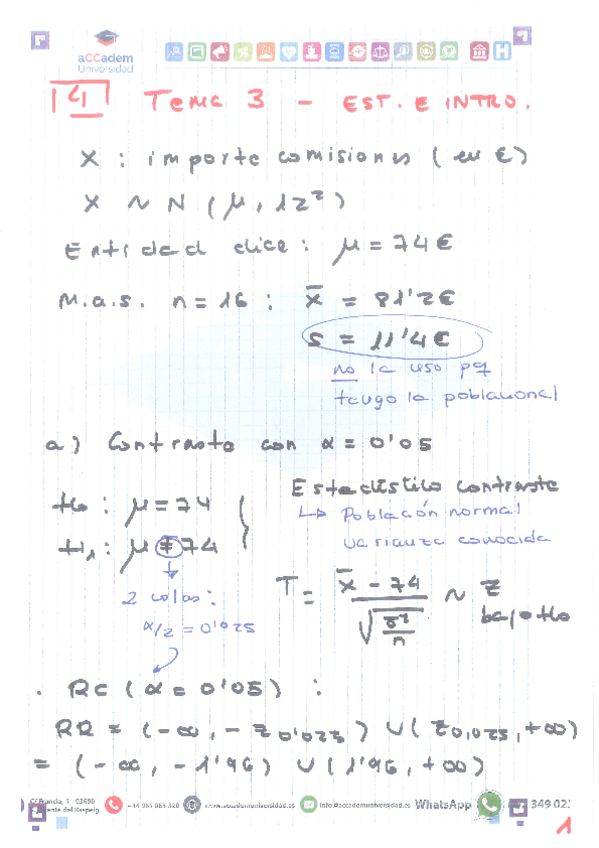 aCCadem
Universidad
4 Tema 3 - EST. E INTRO.
X : importe comisiones (en €)
X ~ N (μ, 12²)
Entidad dice: μ = 74€
M.a.s. n = 16 : x̄ = 81'2€
s = 11'4€
no la uso pq
tengo la poblacional
a) Contraste con α = 0'05
H₀ : μ = 74
H₁ : μ ≠ 74
2 colas:
α/2 = 0'025
Estadístico contraste
↳ Población normal
varianza conocida
T = x̄ - 74 / √(σ²/n) ~ Z bajo H₀
. RC (α = 0'05) :
RR = (-∞, -Z0'025) ∪ (Z0,025, +∞)
= (-∞, -1'96) ∪ (1'96, +∞)
www.accademuniversidad.es
info@accademuniversidad.es
WhatsApp
349 02
1